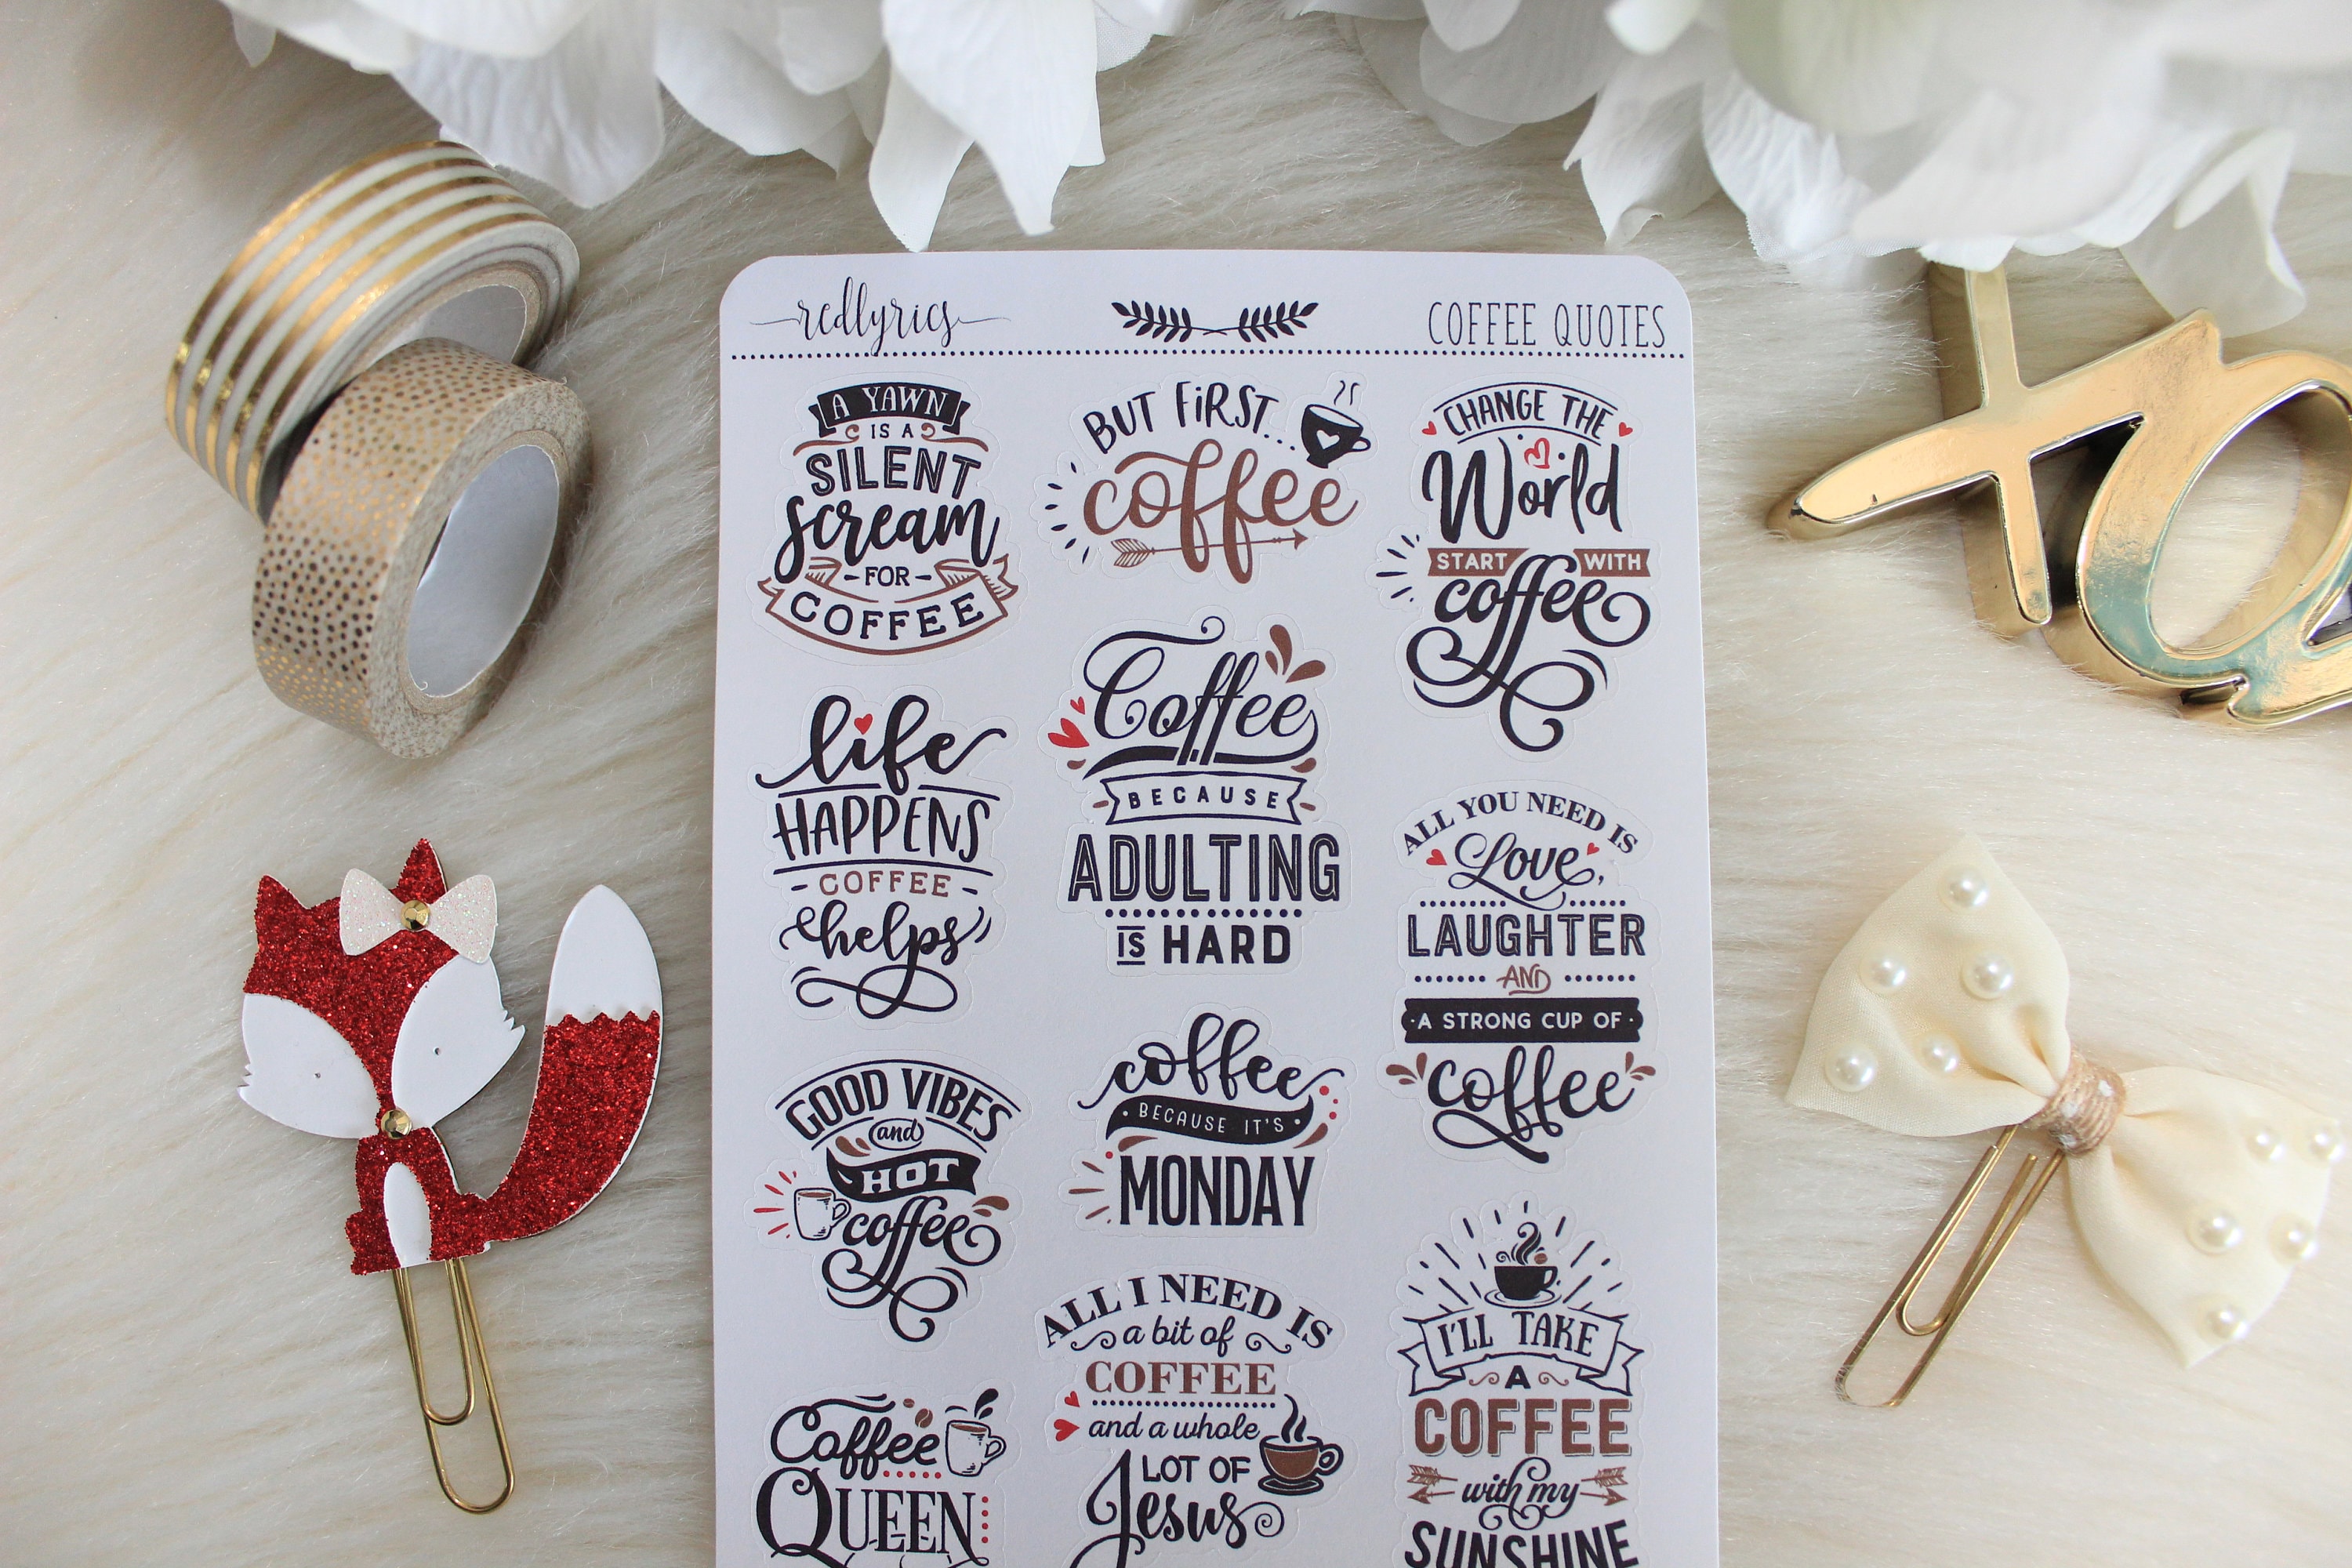 redlyrics
COFFEE QUOTES
A YAWN
IS A
SILENT
scream
-FOR-
COFFEE
life
HAPPENS
-COFFEE-
helps
GOOD VIBES
and
HOT
coffee
Coffee
QUEEN
BUT FIRST...
coffee
Coffee
BECAUSE
ADULTING
IS HARD
coffee
BECAUSE IT'S
MONDAY
ALL I NEED IS
a bit of
COFFEE
and a whole
LOT OF
Jesus
CHANGE THE
World
START WITH
coffee
ALL YOU NEED IS
Love,
LAUGHTER
AND
A STRONG CUP OF
coffee
I'LL TAKE
A
COFFEE
with my
SUNSHINE
xo